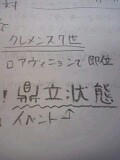 クレメンス7世
ロアヴィニョンで即位
!鼎立状態
イベント